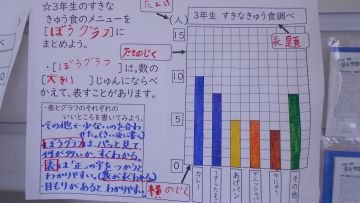 ☆3年生のすきな
きゅう食のメニューを
[ぼうグラフ]に
まとめよう。
・[ぼうグラフ]は、数の
[大きい]じゅんにならべ
かえて、表すことがあります。
・表とグラフのそれぞれの
いいところを書いてみよう。
ぼうグラフは、パッと見て
何が多いか、すぐわかる。
表は「正」の字をつかうと
わかりやすい。(数がすぐわかる)
目もりがあるとわかりやすい。
(人)
3年生 すきなきゅう食調べ
表題
たてのじく
15
10
5
0
カレー
あげパン
その他
横のじく